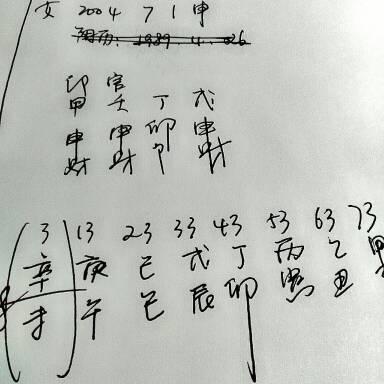 女 2004 7 1 申
阳历: 1989.4.26
印 官
甲 壬 丁 戊
申 申 卯 申
财 财 卩 财
3 13 23 33 43 53 63 73
辛 庚 己 戊 丁 丙 乙 甲
未 午 巳 辰 卯 寅 丑